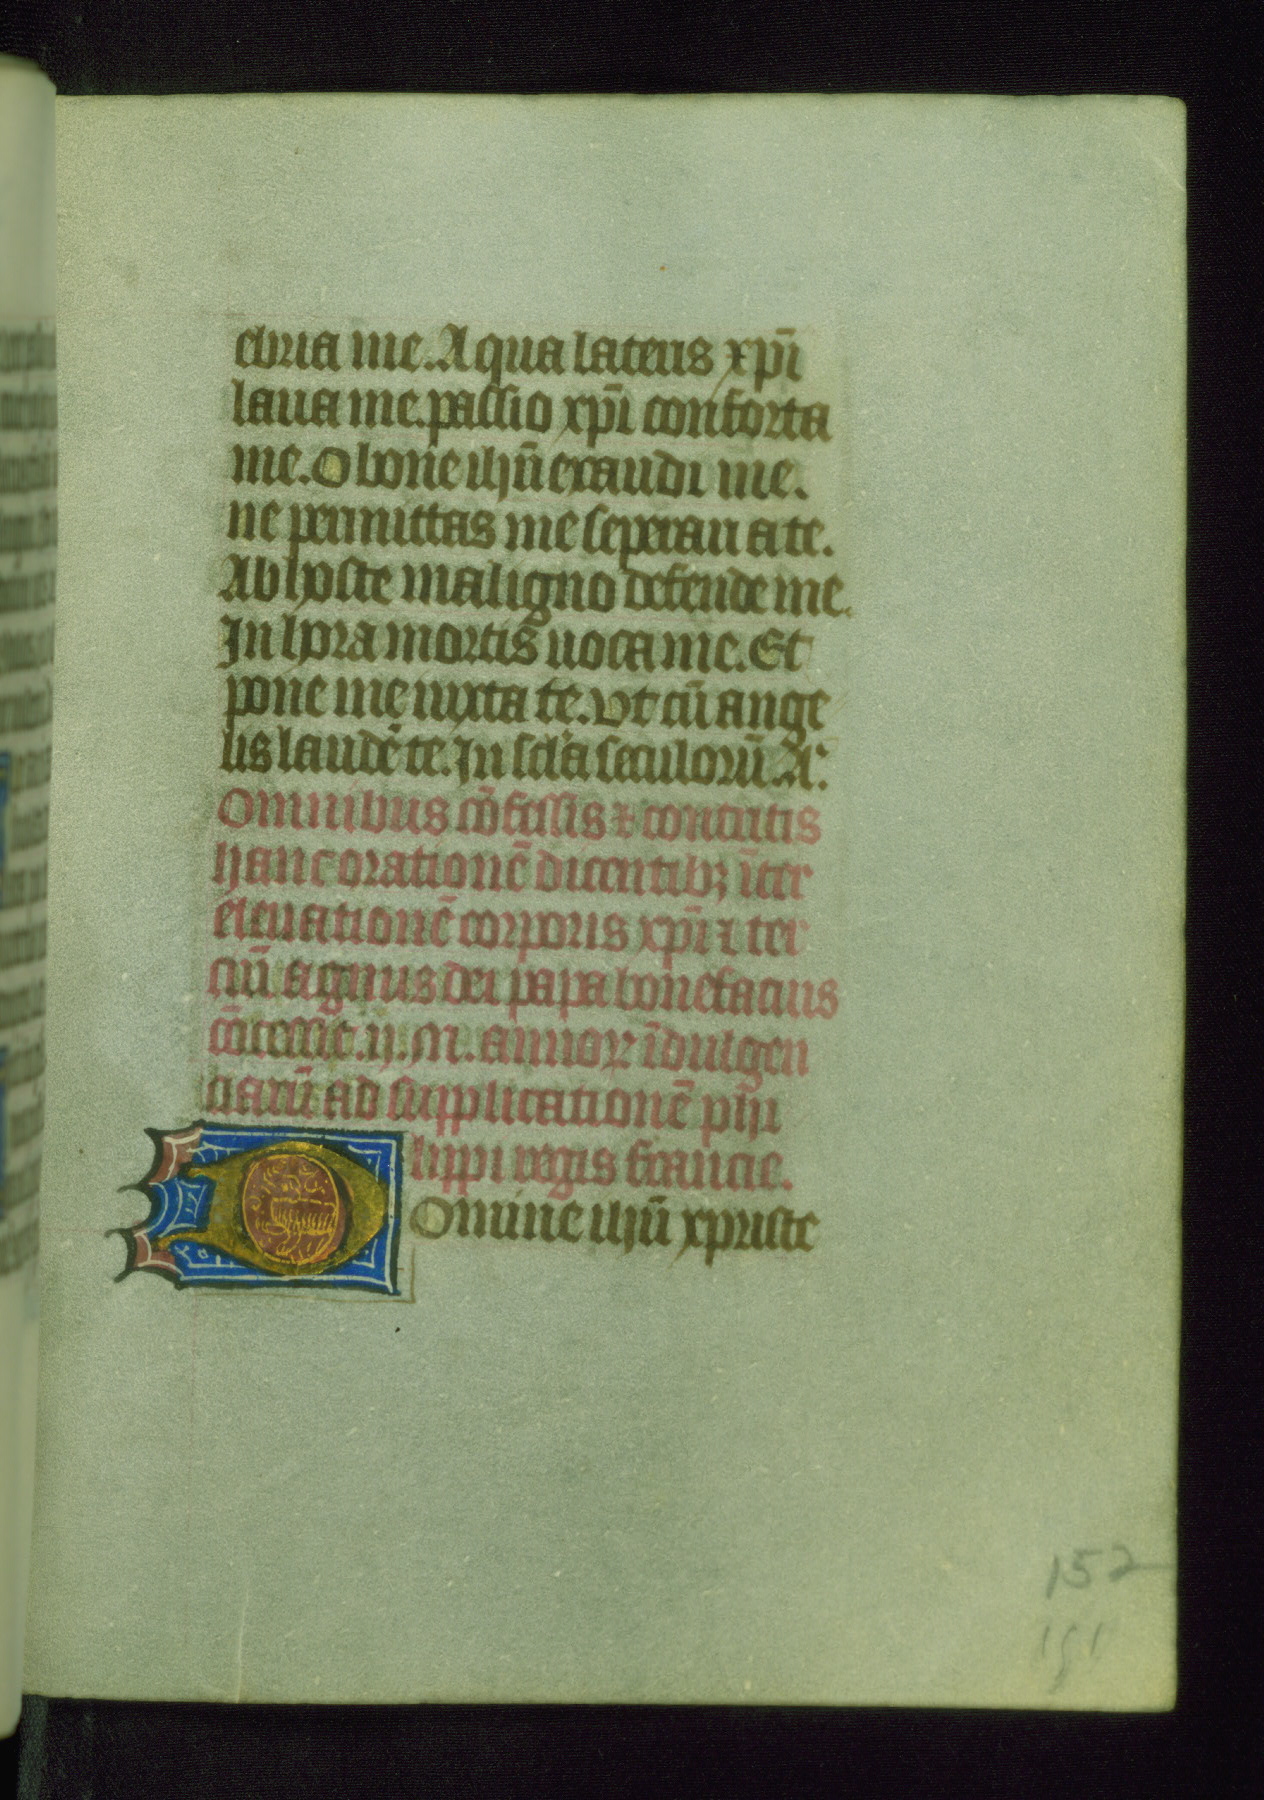 ebria me. Aqua lateris xp̄i
laua me. passio xp̄i conforta
me. O bone ihū exaudi me.
ne permittas me seperari a te.
Ab hoste maligno defende me.
In hora mortis uoca me. Et
pone me iuxta te. Vt cū ange
lis laudē te. In scl'a seculorū. A.
Omnibus cōfessis ⁊ contritis
hanc orationē dicentibꝫ īter
eleuationē corporis xp̄i ⁊ ter
ciū agnus dei papa bonefacius
cōcessit .ij. M. annoꝝ īdulgen
ciarū ad supplicationē phi
lippi regis francie.
Domine ihū xpriste
152
151